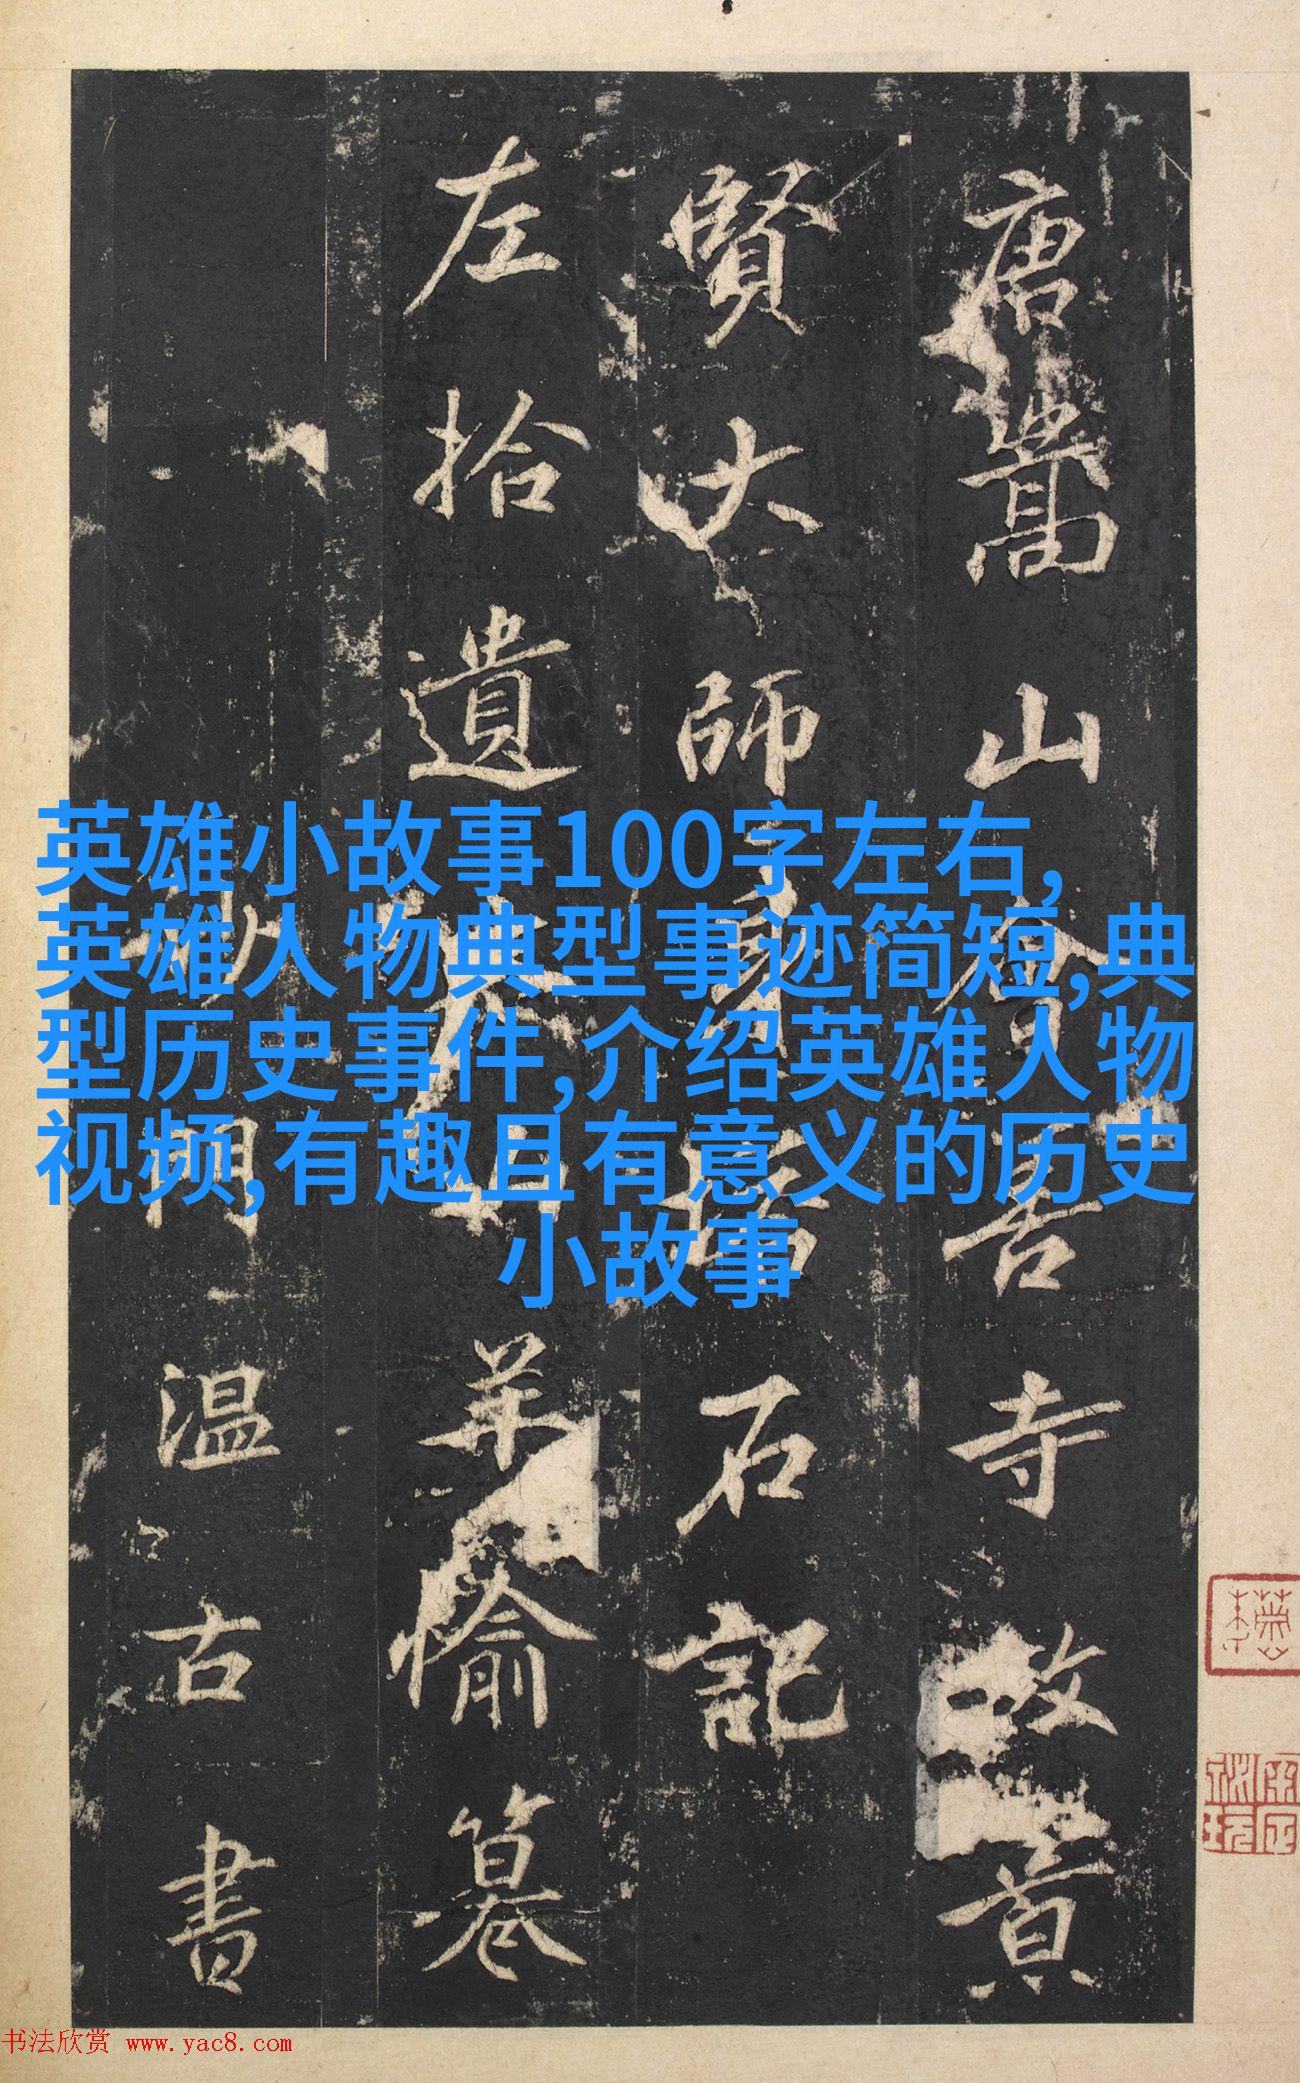 唐嵩山會善寺故景
賢大師身塔石記
左拾遺太山羊愉
沙門溫古書
英雄小故事100字左右,
英雄人物典型事迹简短,典
型历史事件,介绍英雄人物
视频,有趣且有意义的历史
小故事
书法欣赏 www.yac8.com